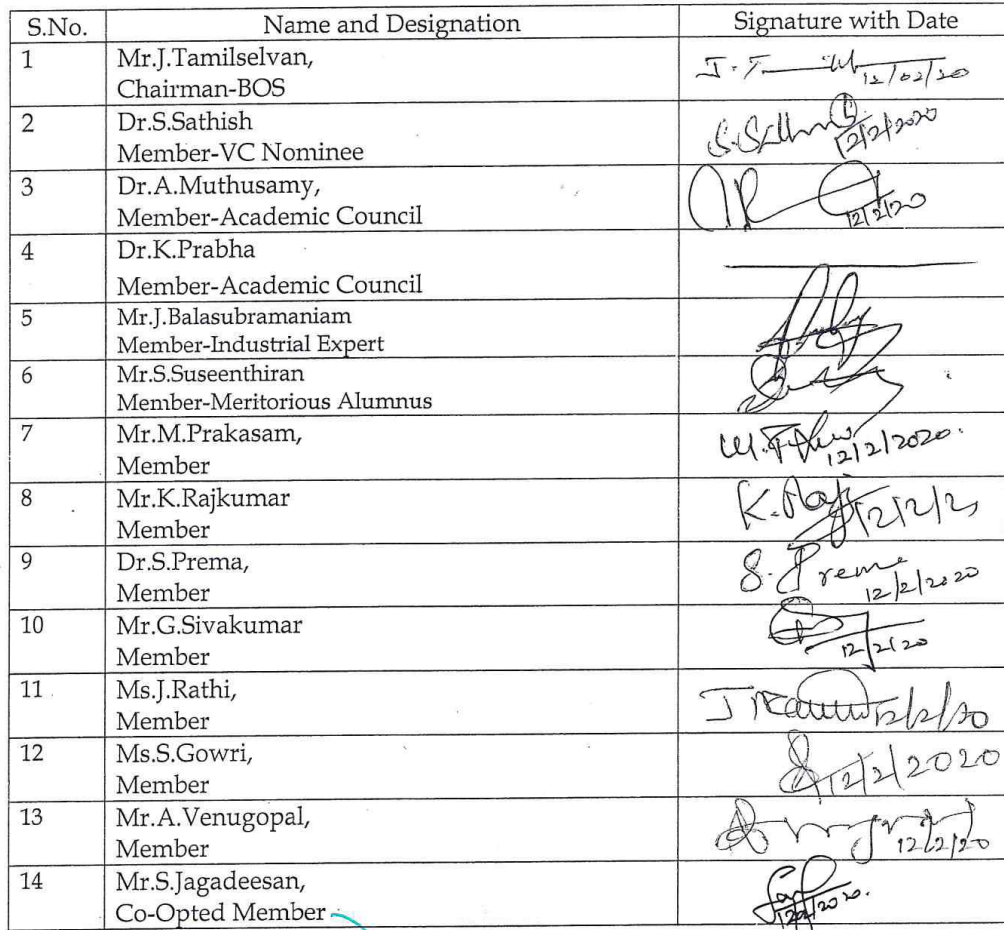 S.No. Name and Designation Signature with Date
1 Mr.J.Tamilselvan,
Chairman-BOS
12/02/20
2 Dr.S.Sathish
Member-VC Nominee
12/2/2020
3 Dr.A.Muthusamy,
Member-Academic Council
12/2/20
4 Dr.K.Prabha
Member-Academic Council
5 Mr.J.Balasubramaniam
Member-Industrial Expert
6 Mr.S.Suseenthiran
Member-Meritorious Alumnus
7 Mr.M.Prakasam,
Member
12/2/2020.
8 Mr.K.Rajkumar
Member
K. Raj 12/2/2
9 Dr.S.Prema,
Member
S. Prema
12/2/2020
10 Mr.G.Sivakumar
Member
12/2/20
11 Ms.J.Rathi,
Member
12/2/20
12 Ms.S.Gowri,
Member
12/2/2020
13 Mr.A.Venugopal,
Member
12/2/20
14 Mr.S.Jagadeesan,
Co-Opted Member
12/2/2020.